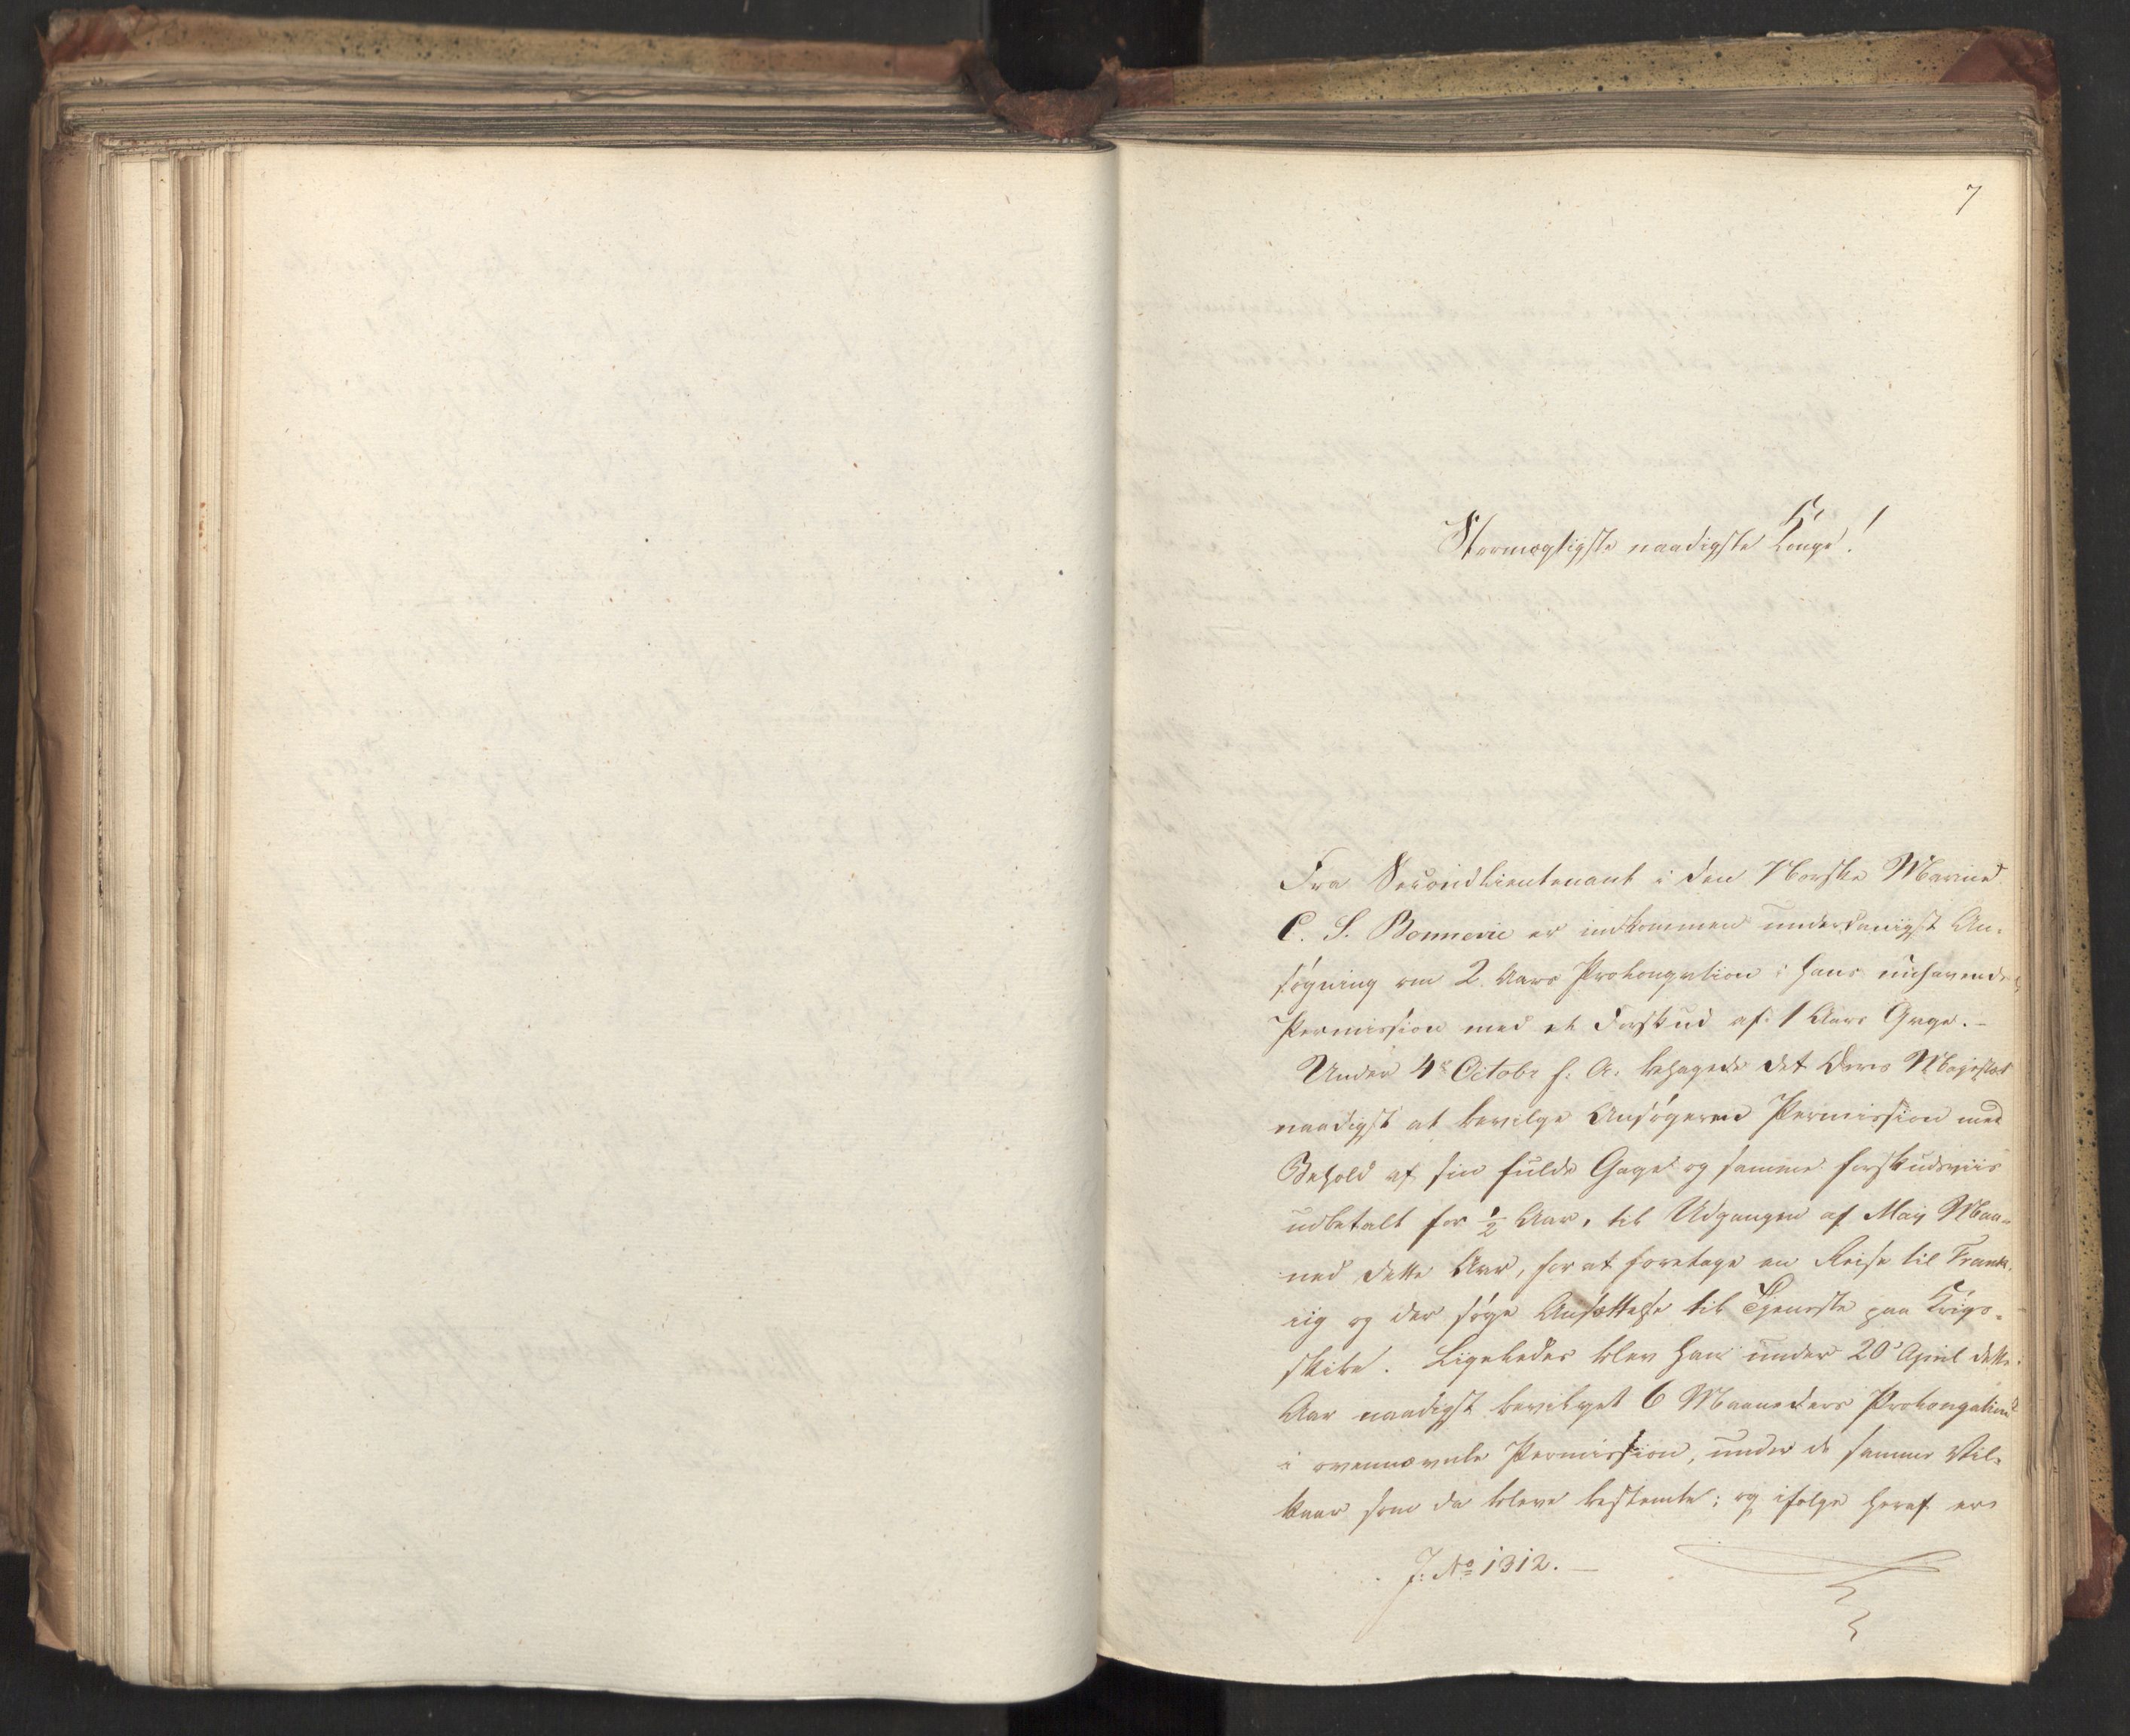 7
Stormægtigste naadigste Konge!
Fra Secondlieutenant i den Norske Marine
C. S. Bonnevie er indkommen underdanigst An-
søgning om 2 Aars Prolongation i hans inehavende
Permission med et Forskud af 1 Aars Gage.-
Under 4de Octobr f: A: behagede det Deres Majestæt
naadigst at bevilge Ansøgeren Permission med
Behold af sin fulde Gage og samme forskudsviis
udbetalt for ½ Aar, til Udgangen af May Maa-
ned dette Aar, for at foretage en Reise til Frank-
rig og der søge Ansættelse til Tjeneste paa Krigs-
skibe. Ligeledes blev han under 20' April dette
Aar naadigst bevilget 6 Maaneders Prolongation
i ovennævnte Permission, under de samme Vil-
kaar som da bleve bestemte; og ifølge heraf er
J: No 1312.-